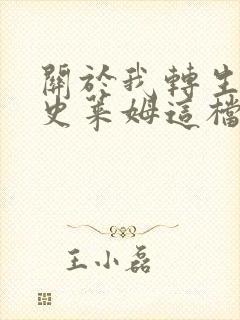 關於我轉生
史萊姆這檔
王小磊